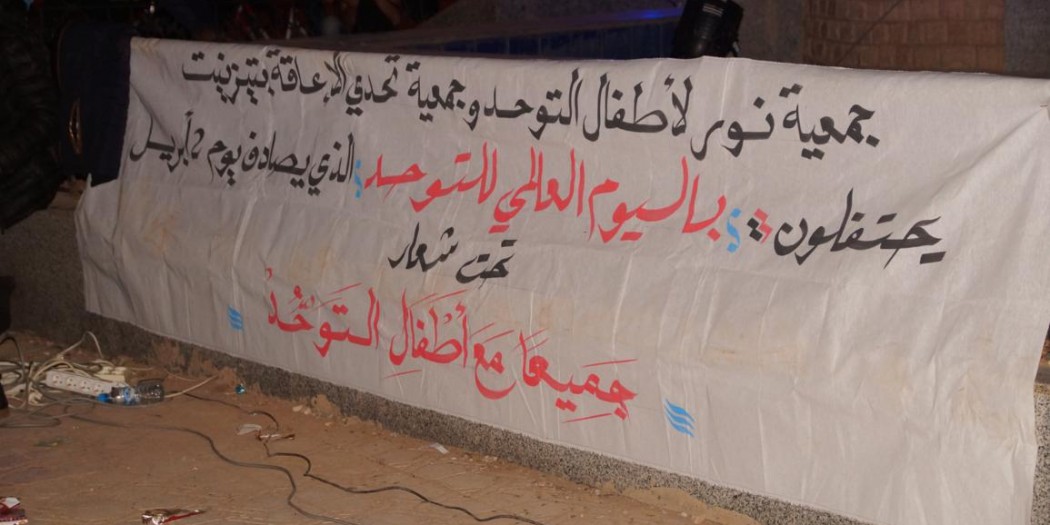 جمعية نور لأطفال التوحد وجمعية تحدي الإعاقة بتيزنيت
يحتفلون : باليوم العالمي للتوحد : الذي يصادف يوم 2 أبريل
تحت شعار
جَمِيعًا مَعَ أَطْفَالِ التَّوَحُّدْ